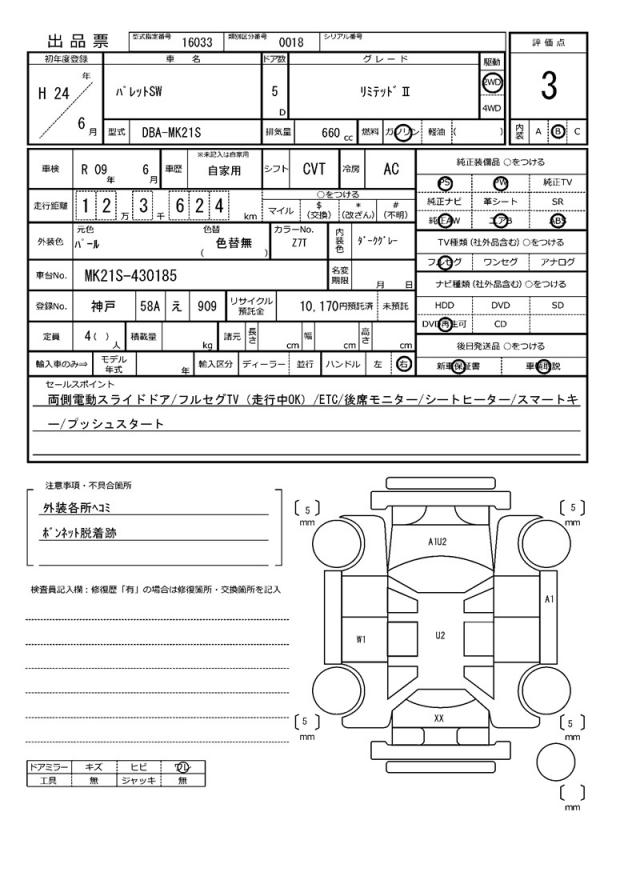 出品票 型式指定番号 16033 類別区分番号 0018 シリアル番号
評価点
3
初年度登録 車名 ドア数 グレード 駆動
H 24 年 6 月 パレットSW 5 D リミテッド Ⅱ 2WD 4WD
型式 DBA-MK21S 排気量 660 cc 燃料 ガソリン 軽油 ( )
内装 A B C
車検 R 09 年 6 月 車歴 ※未記入は自家用 自家用 シフト CVT 冷房 AC
走行距離 1 2 万 3 千 6 2 4 km
○をつける
マイル $ (交換) * (改ざん) # (不明)
外装色 元色 パール 色替 色替無 ( ) カラーNo. Z7T 内装色 ダークグレー
車台No. MK21S-430185 名変期限 月 日
登録No. 神戸 58A え 909 リサイクル預託金 10,170円預託済 未預託
定員 4( ) 人 積載量 kg 諸元 長さ cm 幅 cm 高さ cm
輸入車のみ⇒ モデル年式 年 輸入区分 ディーラー 並行 ハンドル 左 右
純正装備品 ○をつける
PS PW 純正TV
純正ナビ 革シート SR
純正AW エアB ABS
TV種類 (社外品含む) ○をつける
フルセグ ワンセグ アナログ
ナビ種類 (社外品含む) ○をつける
HDD DVD SD
DVD再生可 CD
後日発送品 ○をつける
新車保証書 車輌取説
セールスポイント
両側電動スライドドア/フルセグTV（走行中OK）/ETC/後席モニター/シートヒーター/スマートキ
ー/プッシュスタート
注意事項・不具合箇所
外装各所ヘコミ
ボンネット脱着跡
検査員記入欄：修復歴「有」の場合は修復箇所・交換箇所を記入
5 mm
5 mm
A1U2
A1
W1
U2
XX
5 mm
5 mm
mm
ドアミラー キズ ヒビ ワレ
工具 無 ジャッキ 無